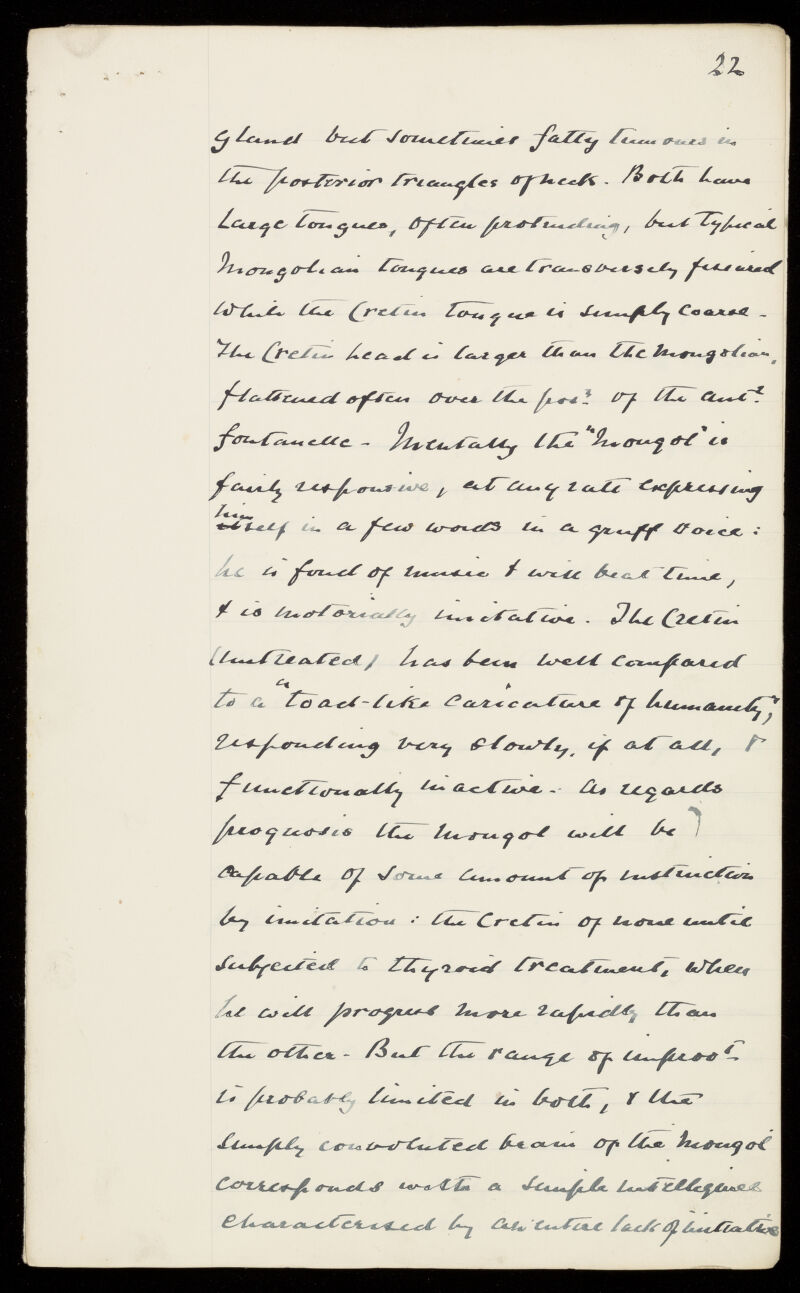 22
gland but sometimes fatty tumours in
the posterior triangles of neck. Both have
large tongues, often protruding, but typical
Mongolian tongues are transversely fissured
while the Cretin tongue is simply coarse.
The Cretin head is larger than the Mongolian,
flattened often over the posn of the antr
fontanelle - Mentally the "Mongol" is
fairly responsive, at any rate expressing
himself in a few words in a gruff voice:
he is fond of music & will beat time,
& is motorially imitative. The Cretin
(untreated) has been well compared
to a "toad-like caricature of humanity",
responding very slowly, if at all, &
functionally inactive. As regards
prognosis the Mongol will be
capable of some amount of instruction
by imitation: the Cretin of none until
subjected to thyroid treatment, when
he will progress more rapidly than
the other - But the range of improvt
is probably limited in both, & the
simply convoluted brain of the Mongol
corresponds with a simple intelligence
characterised by an entire lack of initiative